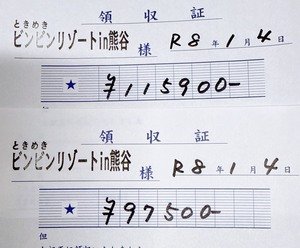 領収証
ときめき
ビンビンリゾートin熊谷 様 R8年1月4日
★ ¥115900-
領収証
ときめき
ビンビンリゾートin熊谷 様 R8年1月4日
★ ¥97500-
但